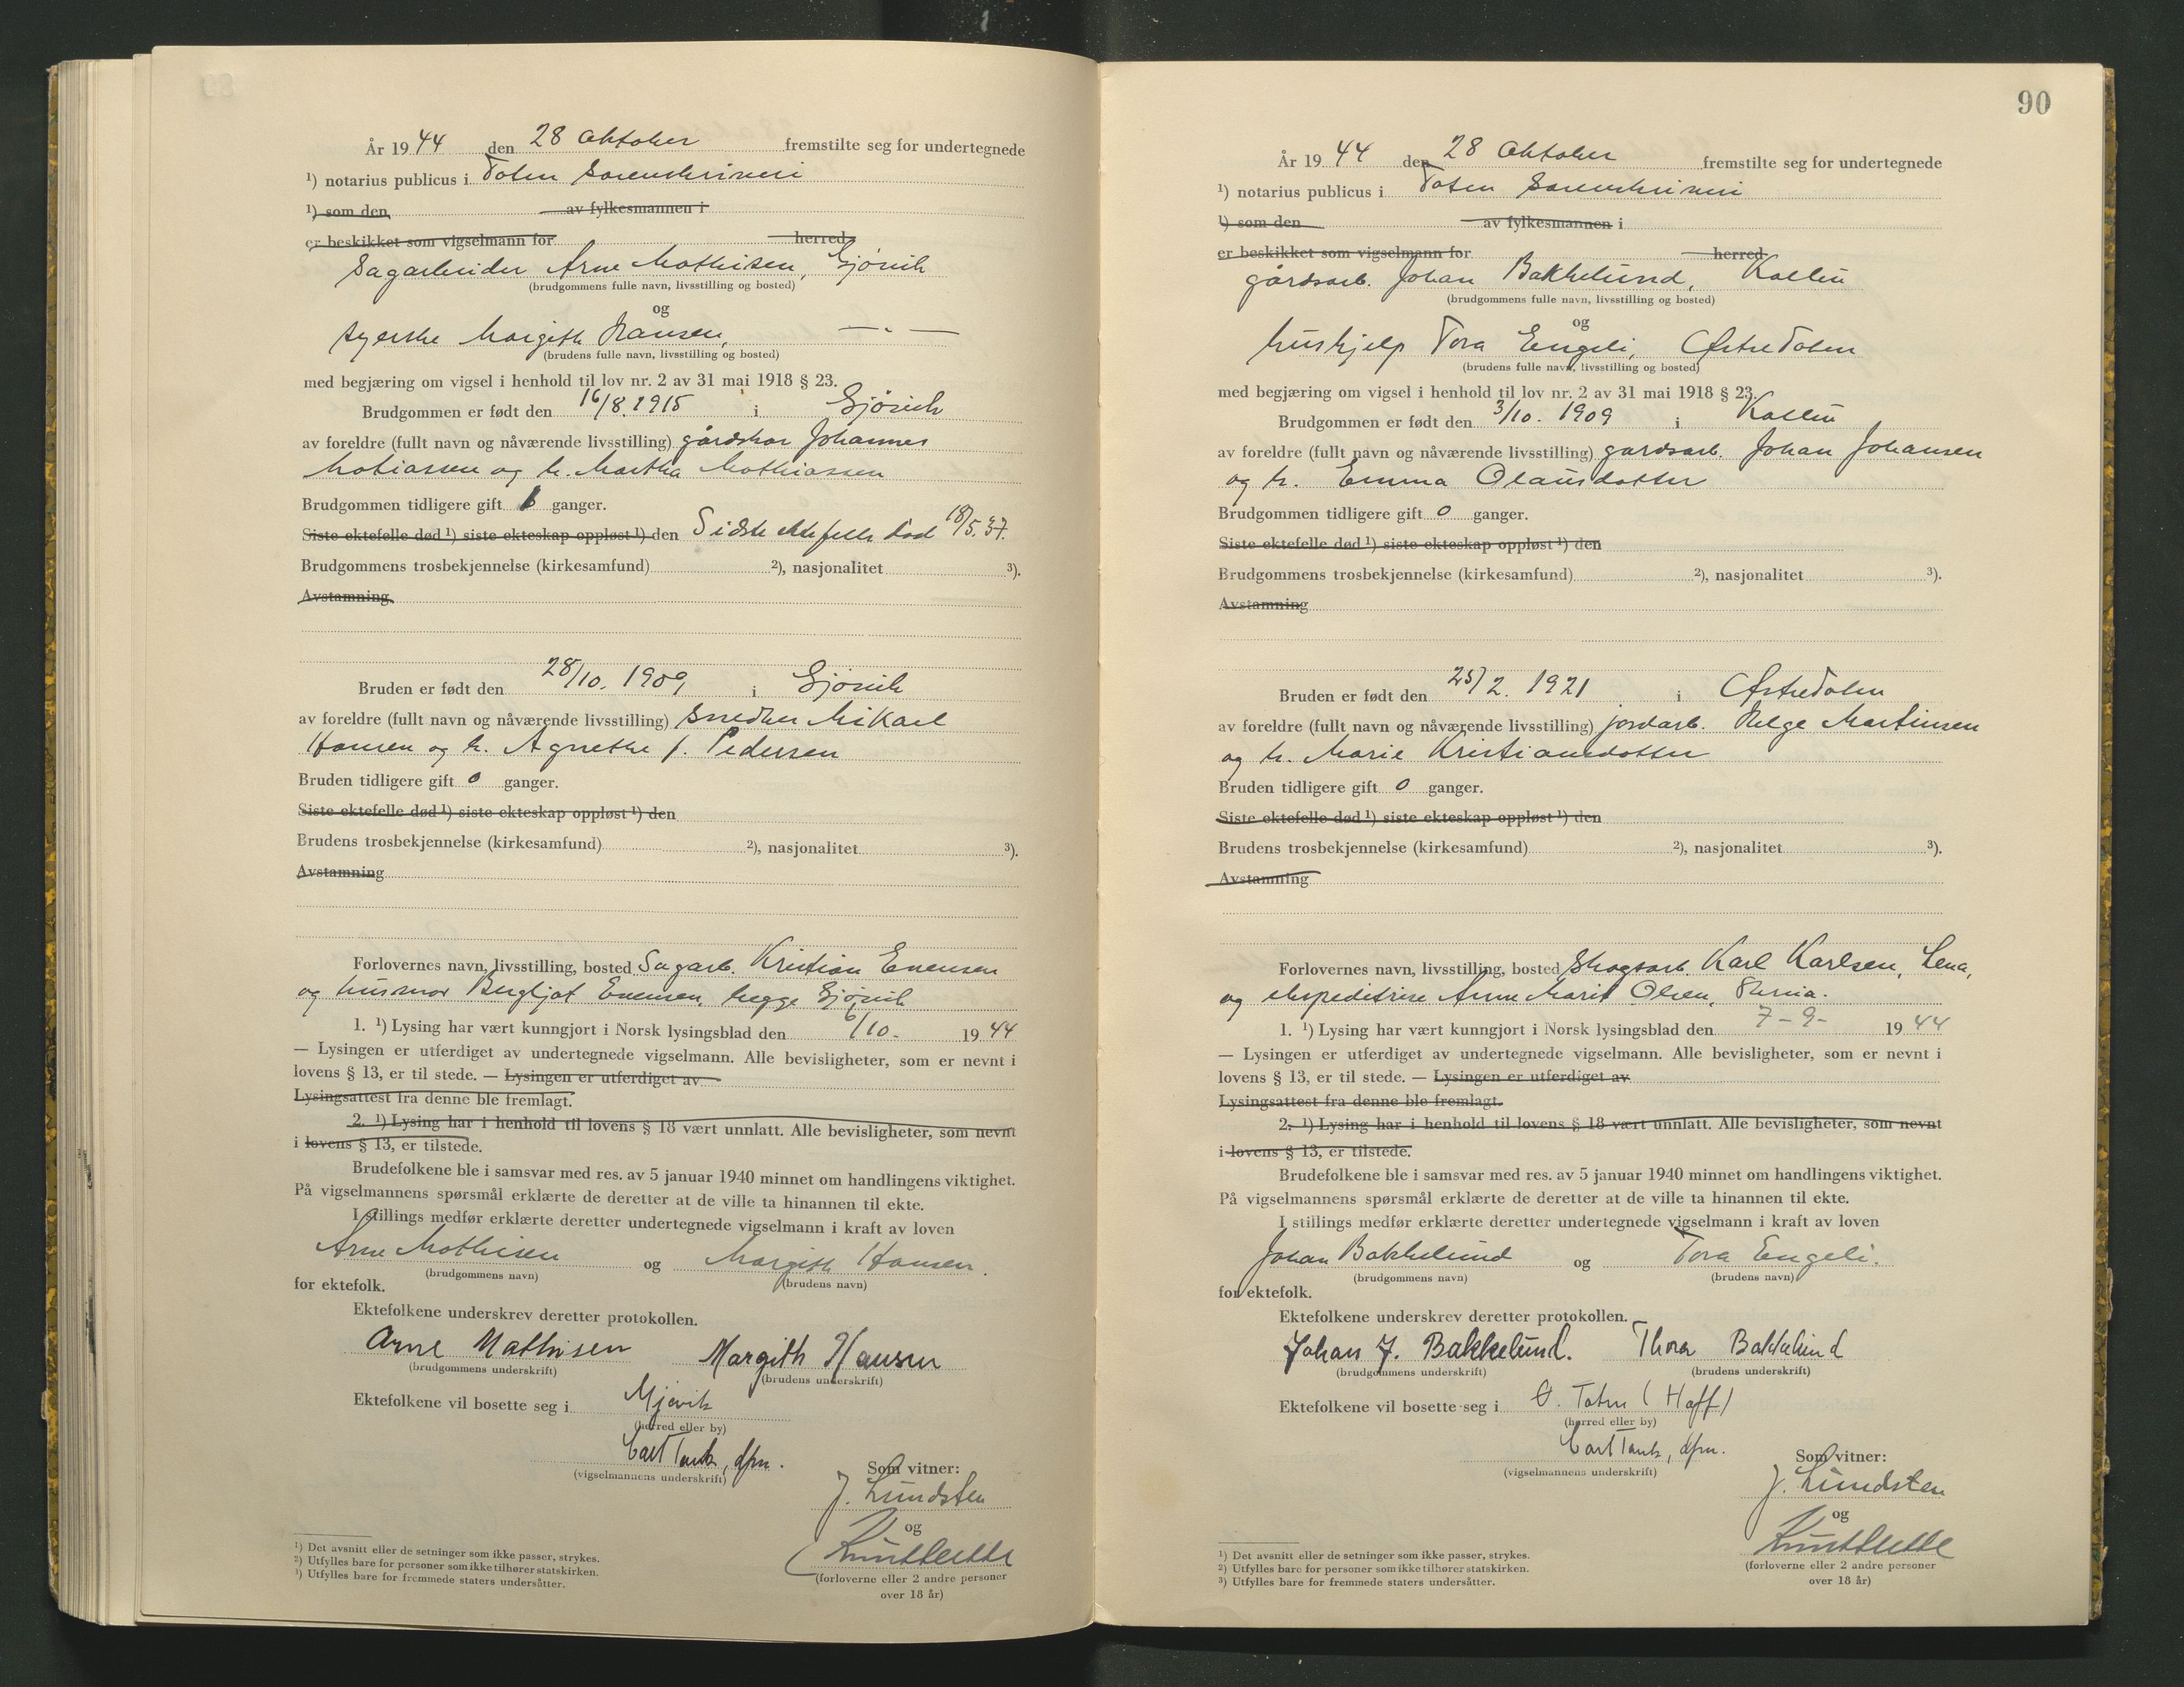 År 19 44 den 28 Oktober fremstilte seg for undertegnede
¹) notarius publicus i Toten Sorenskriveri
¹) som den av fylkesmannen i
er beskikket som vigselmann for herred
Sagarbeider Arne Mathisen, Gjøvik
(brudgommens fulle navn, livsstilling og bosted)
og
syerske Margith Hansen, — " —
(brudens fulle navn, livsstilling og bosted)
med begjæring om vigsel i henhold til lov nr. 2 av 31 mai 1918 § 23.
Brudgommen er født den 16/8.1915 i Gjøvik
av foreldre (fullt navn og nåværende livsstilling) gårdskar Johannes
Matiassen og h. Martha Mathiassen
Brudgommen tidligere gift 1 ganger.
Siste ektefelle død ¹) siste ekteskap oppløst ¹) den Sidste ektefelle död 18/5.37.
Brudgommens trosbekjennelse (kirkesamfund) ²), nasjonalitet ³).
Avstamning
Bruden er født den 28/10. 1909 i Gjøvik
av foreldre (fullt navn og nåværende livsstilling) snedker Mikael
Hansen og h. Agnethe f. Pedersen
Bruden tidligere gift 0 ganger.
Siste ektefelle død ¹) siste ekteskap oppløst ¹) den
Brudens trosbekjennelse (kirkesamfund) ²), nasjonalitet ³).
Avstamning
Forlovernes navn, livsstilling, bosted Sagarb. Kristian Evensen
og husmor Bergljot Evensen, begge Gjøvik
1. ¹) Lysing har vært kunngjort i Norsk lysingsblad den 6/10- 19 44
— Lysingen er utferdiget av undertegnede vigselmann. Alle bevisligheter, som er nevnt i
lovens § 13, er til stede. — Lysingen er utferdiget av
Lysingsattest fra denne ble fremlagt.
2. ¹) Lysing har i henhold til lovens § 18 vært unnlatt. Alle bevisligheter, som nevnt
i lovens § 13, er tilstede.
Brudefolkene ble i samsvar med res. av 5 januar 1940 minnet om handlingens viktighet.
På vigselmannens spørsmål erklærte de deretter at de ville ta hinannen til ekte.
I stillings medfør erklærte deretter undertegnede vigselmann i kraft av loven
Arne Mathisen og Margith Hansen.
(brudgommens navn) (brudens navn)
for ektefolk.
Ektefolkene underskrev deretter protokollen.
Arne Mathisen Margith Hansen
(brudgommens underskrift) (brudens underskrift)
Ektefolkene vil bosette seg i Gjøvik
(herred eller by)
Carl Tank, dfm.
(vigselmannens underskrift)
Som vitner:
J. Lundsten
og
(forloverne eller 2 andre personer
over 18 år)
¹) Det avsnitt eller de setninger som ikke passer, strykes.
²) Utfylles bare for personer som ikke tilhører statskirken.
³) Utfylles bare for fremmede staters undersåtter.
90
År 19 44 den 28 Oktober fremstilte seg for undertegnede
¹) notarius publicus i Toten Sorenskriveri
¹) som den av fylkesmannen i
er beskikket som vigselmann for herred
gårdsarb. Johan Bakkelund, Kolbu
(brudgommens fulle navn, livsstilling og bosted)
og
hushjelp Tora Engeli, Østre Toten
(brudens fulle navn, livsstilling og bosted)
med begjæring om vigsel i henhold til lov nr. 2 av 31 mai 1918 § 23.
Brudgommen er født den 3/10. 1909 i Kolbu
av foreldre (fullt navn og nåværende livsstilling) gardsarb. Johan Johansen
og h. Emma Olausdotter
Brudgommen tidligere gift 0 ganger.
Siste ektefelle død ¹) siste ekteskap oppløst ¹) den
Brudgommens trosbekjennelse (kirkesamfund) ²), nasjonalitet ³).
Avstamning
Bruden er født den 25/2. 1921 i Østre Toten
av foreldre (fullt navn og nåværende livsstilling) jordarb. Helge Martinsen
og h. Marie Kristiansdotter
Bruden tidligere gift 0 ganger.
Siste ektefelle død ¹) siste ekteskap oppløst ¹) den
Brudens trosbekjennelse (kirkesamfund) ²), nasjonalitet ³).
Avstamning
Forlovernes navn, livsstilling, bosted Skogsarb. Karl Karlsen, Lena,
og ekspeditrise Anne Marit Olsen,
1. ¹) Lysing har vært kunngjort i Norsk lysingsblad den 7-9- 19 44
— Lysingen er utferdiget av undertegnede vigselmann. Alle bevisligheter, som er nevnt i
lovens § 13, er til stede. — Lysingen er utferdiget av
Lysingsattest fra denne ble fremlagt.
2. ¹) Lysing har i henhold til lovens § 18 vært unnlatt. Alle bevisligheter, som nevnt
i lovens § 13, er tilstede.
Brudefolkene ble i samsvar med res. av 5 januar 1940 minnet om handlingens viktighet.
På vigselmannens spørsmål erklærte de deretter at de ville ta hinannen til ekte.
I stillings medfør erklærte deretter undertegnede vigselmann i kraft av loven
Johan Bakkelund og Tora Engeli.
(brudgommens navn) (brudens navn)
for ektefolk.
Ektefolkene underskrev deretter protokollen.
Johan J. Bakkelund. Thora Bakkelund
(brudgommens underskrift) (brudens underskrift)
Ektefolkene vil bosette seg i Ø. Toten (Hoff)
(herred eller by)
Carl Tank, dfm.
(vigselmannens underskrift)
Som vitner:
J. Lundsten
og
(forloverne eller 2 andre personer
over 18 år)
¹) Det avsnitt eller de setninger som ikke passer, strykes.
²) Utfylles bare for personer som ikke tilhører statskirken.
³) Utfylles bare for fremmede staters undersåtter.